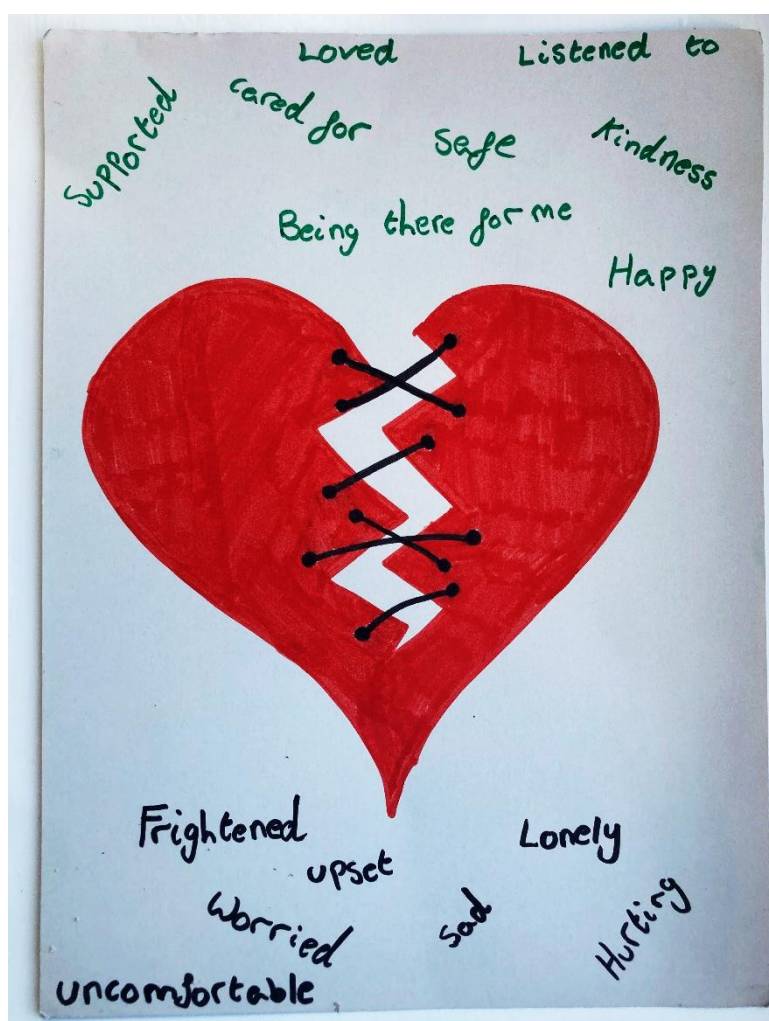 Loved
Listened to
Supported
cared for
safe
Kindness
Being there for me
Happy
Frightened
upset
Lonely
Worried
sad
Hurting
uncomfortable